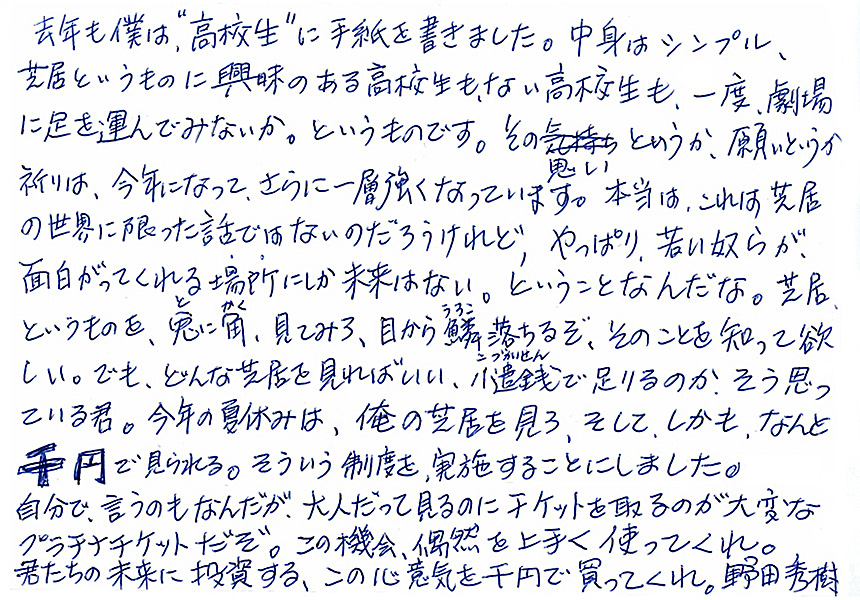 去年も僕は、“高校生”に手紙を書きました。中身はシンプル、
芝居というものに興味のある高校生も、ない高校生も、一度、劇場
に足を運んでみないか。というものです。その気持ち思いというか、願いというか
祈りは、今年になって、さらに一層強くなっています。本当は、これは芝居
の世界に限った話ではないのだろうけれど、やっぱり、若い奴らが、
面白がってくれる場所にしか未来はない。ということなんだな。芝居、
というものを、兎に角、見てみろ、目から鱗落ちるぞ、そのことを知って欲
しい。でも、どんな芝居を見ればいい、小遣銭で足りるのか、そう思っ
ている君。今年の夏休みは、俺の芝居を見ろ、そして、しかも、なんと
千円で見られる。そういう制度を、実施することにしました。
自分で、言うのもなんだが、大人だって見るのにチケットを取るのが大変な
プラチナチケットだぞ。この機会、偶然を上手く使ってくれ。
君たちの未来に投資する、この心意気を千円で買ってくれ。野田秀樹